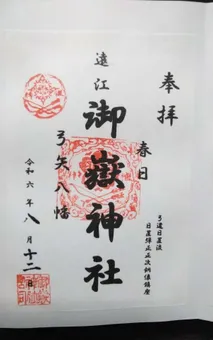 奉拝
春日
弓道日置流
日置弾正正次
遠江
御嶽神社
弓矢八幡
令和六年八月十二日